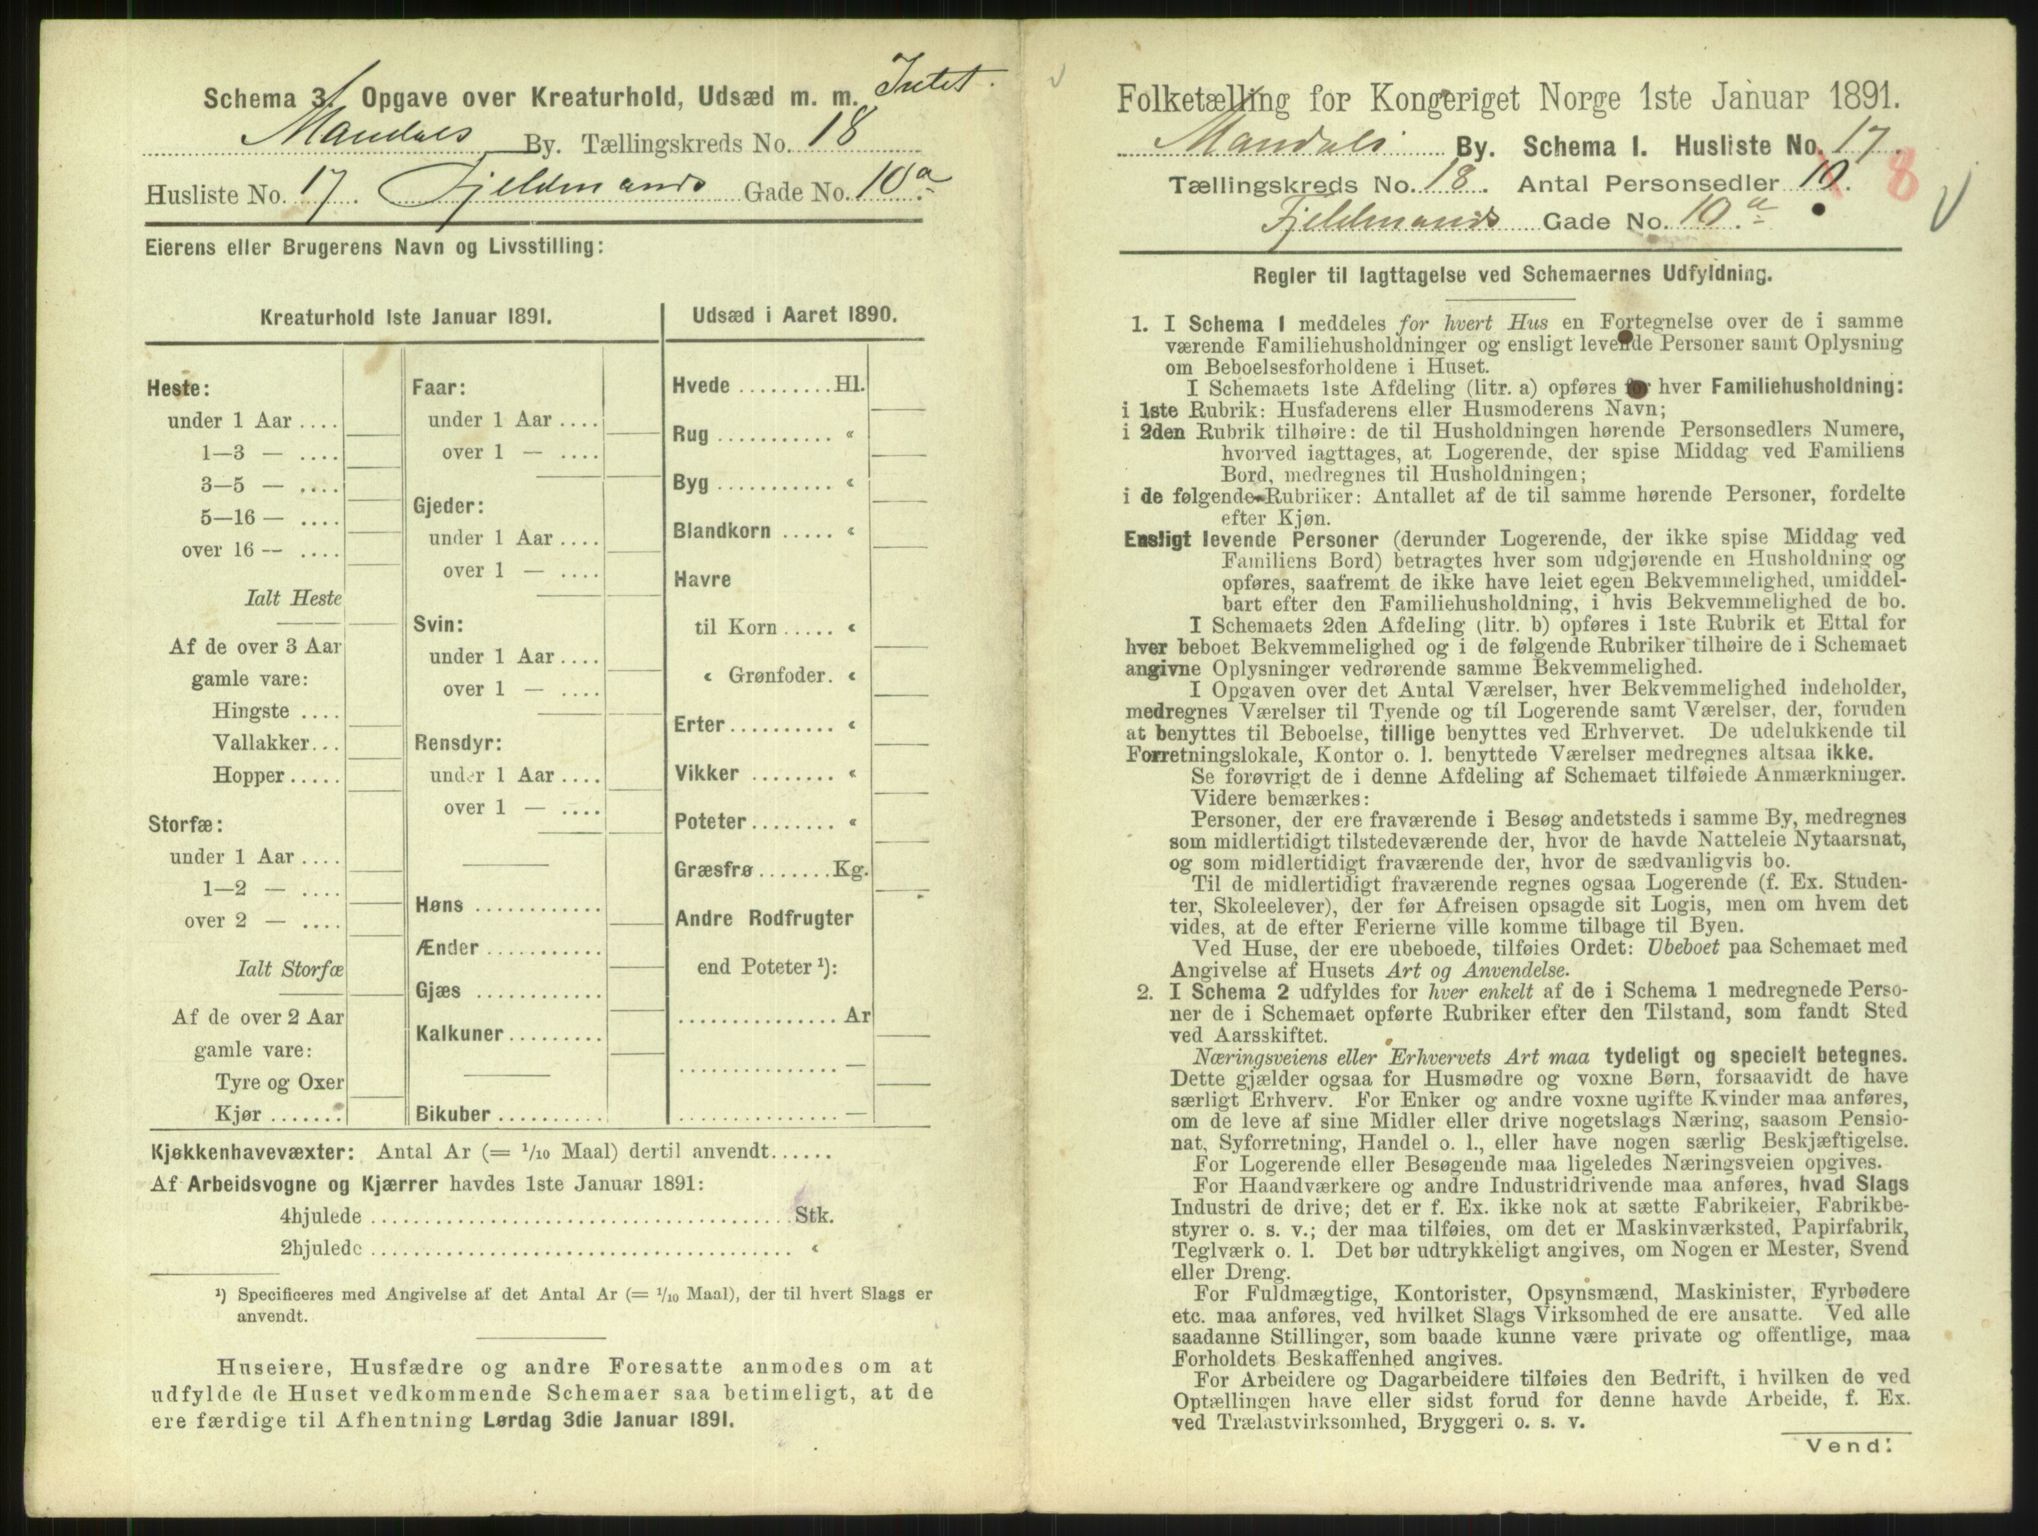 Schema 3. Opgave over Kreaturhold, Udsæd m. m. Intet.
Mandals By. Tællingskreds No. 18
Husliste No. 17. Fjeldmands Gade No. 10a.
Eierens eller Brugerens Navn og Livsstilling:
Kreaturhold 1ste Januar 1891.
Heste:
under 1 Aar ....
1—3 — ....
3—5 — ....
5—16 — ....
over 16 — ....
Ialt Heste
Af de over 3 Aar
gamle vare:
Hingste ....
Vallakker...
Hopper .....
Storfæ:
under 1 Aar ....
1—2 — ....
over 2 — ....
Ialt Storfæ
Af de over 2 Aar
gamle vare:
Tyre og Oxer
Kjør .......
Faar:
under 1 Aar ....
over 1 — ....
Gjeder:
under 1 Aar ....
over 1 — ....
Svin:
under 1 Aar ....
over 1 — ....
Rensdyr:
under 1 Aar ....
over 1 — ....
Høns ............
Ænder ...........
Gjæs ............
Kalkuner.........
Bikuber ..........
Udsæd i Aaret 1890.
Hvede .........Hl.
Rug ........... «
Byg ........... «
Blandkorn ..... «
Havre
til Korn ..... «
« Grønfoder. «
Erter .......... «
Vikker ........ «
Poteter........ «
Græsfrø .......Kg.
Andre Rodfrugter
end Poteter ¹):
............... Ar
............... —
............... —
Kjøkkenhavevæxter: Antal Ar (= 1/10 Maal) dertil anvendt......
Af Arbeidsvogne og Kjærrer havdes 1ste Januar 1891:
4hjulede ....................................... Stk.
2hjulede ....................................... «
¹) Specificeres med Angivelse af det Antal Ar (= 1/10 Maal), der til hvert Slags er
anvendt.
Huseiere, Husfædre og andre Foresatte anmodes om at
udfylde de Huset vedkommende Schemaer saa betimeligt, at de
ere færdige til Afhentning Lørdag 3die Januar 1891.
Folketælling for Kongeriget Norge 1ste Januar 1891.
Mandals By. Schema 1. Husliste No. 17.
Tællingskreds No. 18. Antal Personsedler 10. 8
Fjeldmands Gade No. 10a.
Regler til Iagttagelse ved Schemaernes Udfyldning.
1. I Schema 1 meddeles for hvert Hus en Fortegnelse over de i samme
værende Familiehusholdninger og ensligt levende Personer samt Oplysning
om Beboelsesforholdene i Huset.
I Schemaets 1ste Afdeling (litr. a) opføres for hver Familiehusholdning:
i 1ste Rubrik: Husfaderens eller Husmoderens Navn;
i 2den Rubrik tilhøire: de til Husholdningen hørende Personsedlers Numere,
hvorved iagttages, at Logerende, der spise Middag ved Familiens
Bord, medregnes til Husholdningen;
i de følgende Rubriker: Antallet af de til samme hørende Personer, fordelte
efter Kjøn.
Ensligt levende Personer (derunder Logerende, der ikke spise Middag ved
Familiens Bord) betragtes hver som udgjørende en Husholdning og
opføres, saafremt de ikke have leiet egen Bekvemmelighed, umiddel-
bart efter den Familiehusholdning, i hvis Bekvemmelighed de bo.
I Schemaets 2den Afdeling (litr. b) opføres i 1ste Rubrik et Ettal for
hver beboet Bekvemmelighed og i de følgende Rubriker tilhøire de i Schemaet
angivne Oplysninger vedrørende samme Bekvemmelighed.
I Opgaven over det Antal Værelser, hver Bekvemmelighed indeholder,
medregnes Værelser til Tyende og til Logerende samt Værelser, der, foruden
at benyttes til Beboelse, tillige benyttes ved Erhvervet. De udelukkende til
Forretningslokale, Kontor o. l. benyttede Værelser medregnes altsaa ikke.
Se forøvrigt de i denne Afdeling af Schemaet tilføiede Anmærkninger.
Videre bemærkes:
Personer, der ere fraværende i Besøg andetsteds i samme By, medregnes
som midlertidigt tilstedeværende der, hvor de havde Natteleie Nytaarsnat,
og som midlertidigt fraværende der, hvor de sædvanligvis bo.
Til de midlertidigt fraværende regnes ogsaa Logerende (f. Ex. Studen-
ter, Skoleelever), der før Afreisen opsagde sit Logis, men om hvem det
vides, at de efter Ferierne ville komme tilbage til Byen.
Ved Huse, der ere ubeboede, tilføies Ordet: Ubeboet paa Schemaet med
Angivelse af Husets Art og Anvendelse.
2. I Schema 2 udfyldes for hver enkelt af de i Schema 1 medregnede Perso-
ner de i Schemaet opførte Rubriker efter den Tilstand, som fandt Sted
ved Aarsskiftet.
Næringsveiens eller Erhvervets Art maa tydeligt og specielt betegnes.
Dette gjælder ogsaa for Husmødre og voxne Børn, forsaavidt de have
særligt Erhverv. For Enker og andre voxne ugifte Kvinder maa anføres,
om de leve af sine Midler eller drive nogetslags Næring, saasom Pensio-
nat, Syforretning, Handel o. l., eller have nogen særlig Beskjæftigelse.
For Logerende eller Besøgende maa ligeledes Næringsveien opgives.
For Haandværkere og andre Industridrivende maa anføres, hvad Slags
Industri de drive; det er f. Ex. ikke nok at sætte Fabrikeier, Fabrikbe-
styrer o. s. v.; der maa tilføies, om det er Maskinværksted, Papirfabrik,
Teglværk o. l. Det bør udtrykkeligt angives, om Nogen er Mester, Svend
eller Dreng.
For Fuldmægtige, Kontorister, Opsynsmænd, Maskinister, Fyrbødere
etc. maa anføres, ved hvilket Slags Virksomhed de ere ansatte. Ved alle
saadanne Stillinger, som baade kunne være private og offentlige, maa
Forholdets Beskaffenhed angives.
For Arbeidere og Dagarbeidere tilføies den Bedrift, i hvilken de ved
Optællingen have eller sidst forud for denne havde Arbeide, f. Ex.
ved Trælastvirksomhed, Bryggeri o. s. v.
Vend!